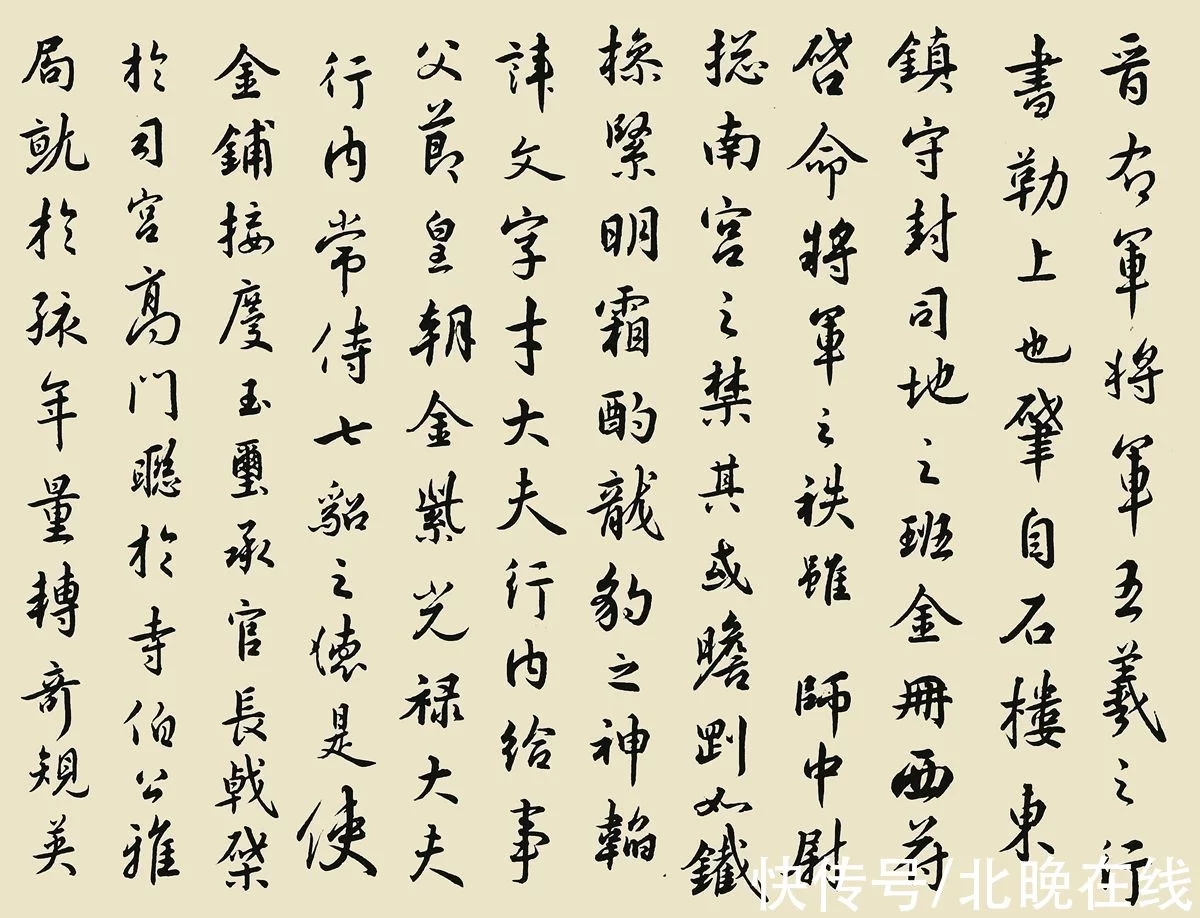 晋右軍將軍王羲之行
書勒上也肇自石樓東
鎮守封司地之班金冊西符
啓命將軍之秩雖 師中尉
揔南宮之禁其或瞻剛如鐵
操緊明霜酌龍豹之神韜
諱文字才大夫行内給事
父節皇朝金紫光禄大夫
行内常侍七貂之德是使
金鋪接慶玉璽承官長戟棨
於司宮高門聰於寺伯公雅
局就於孩年量轉奇規英
快传号/北晚在线